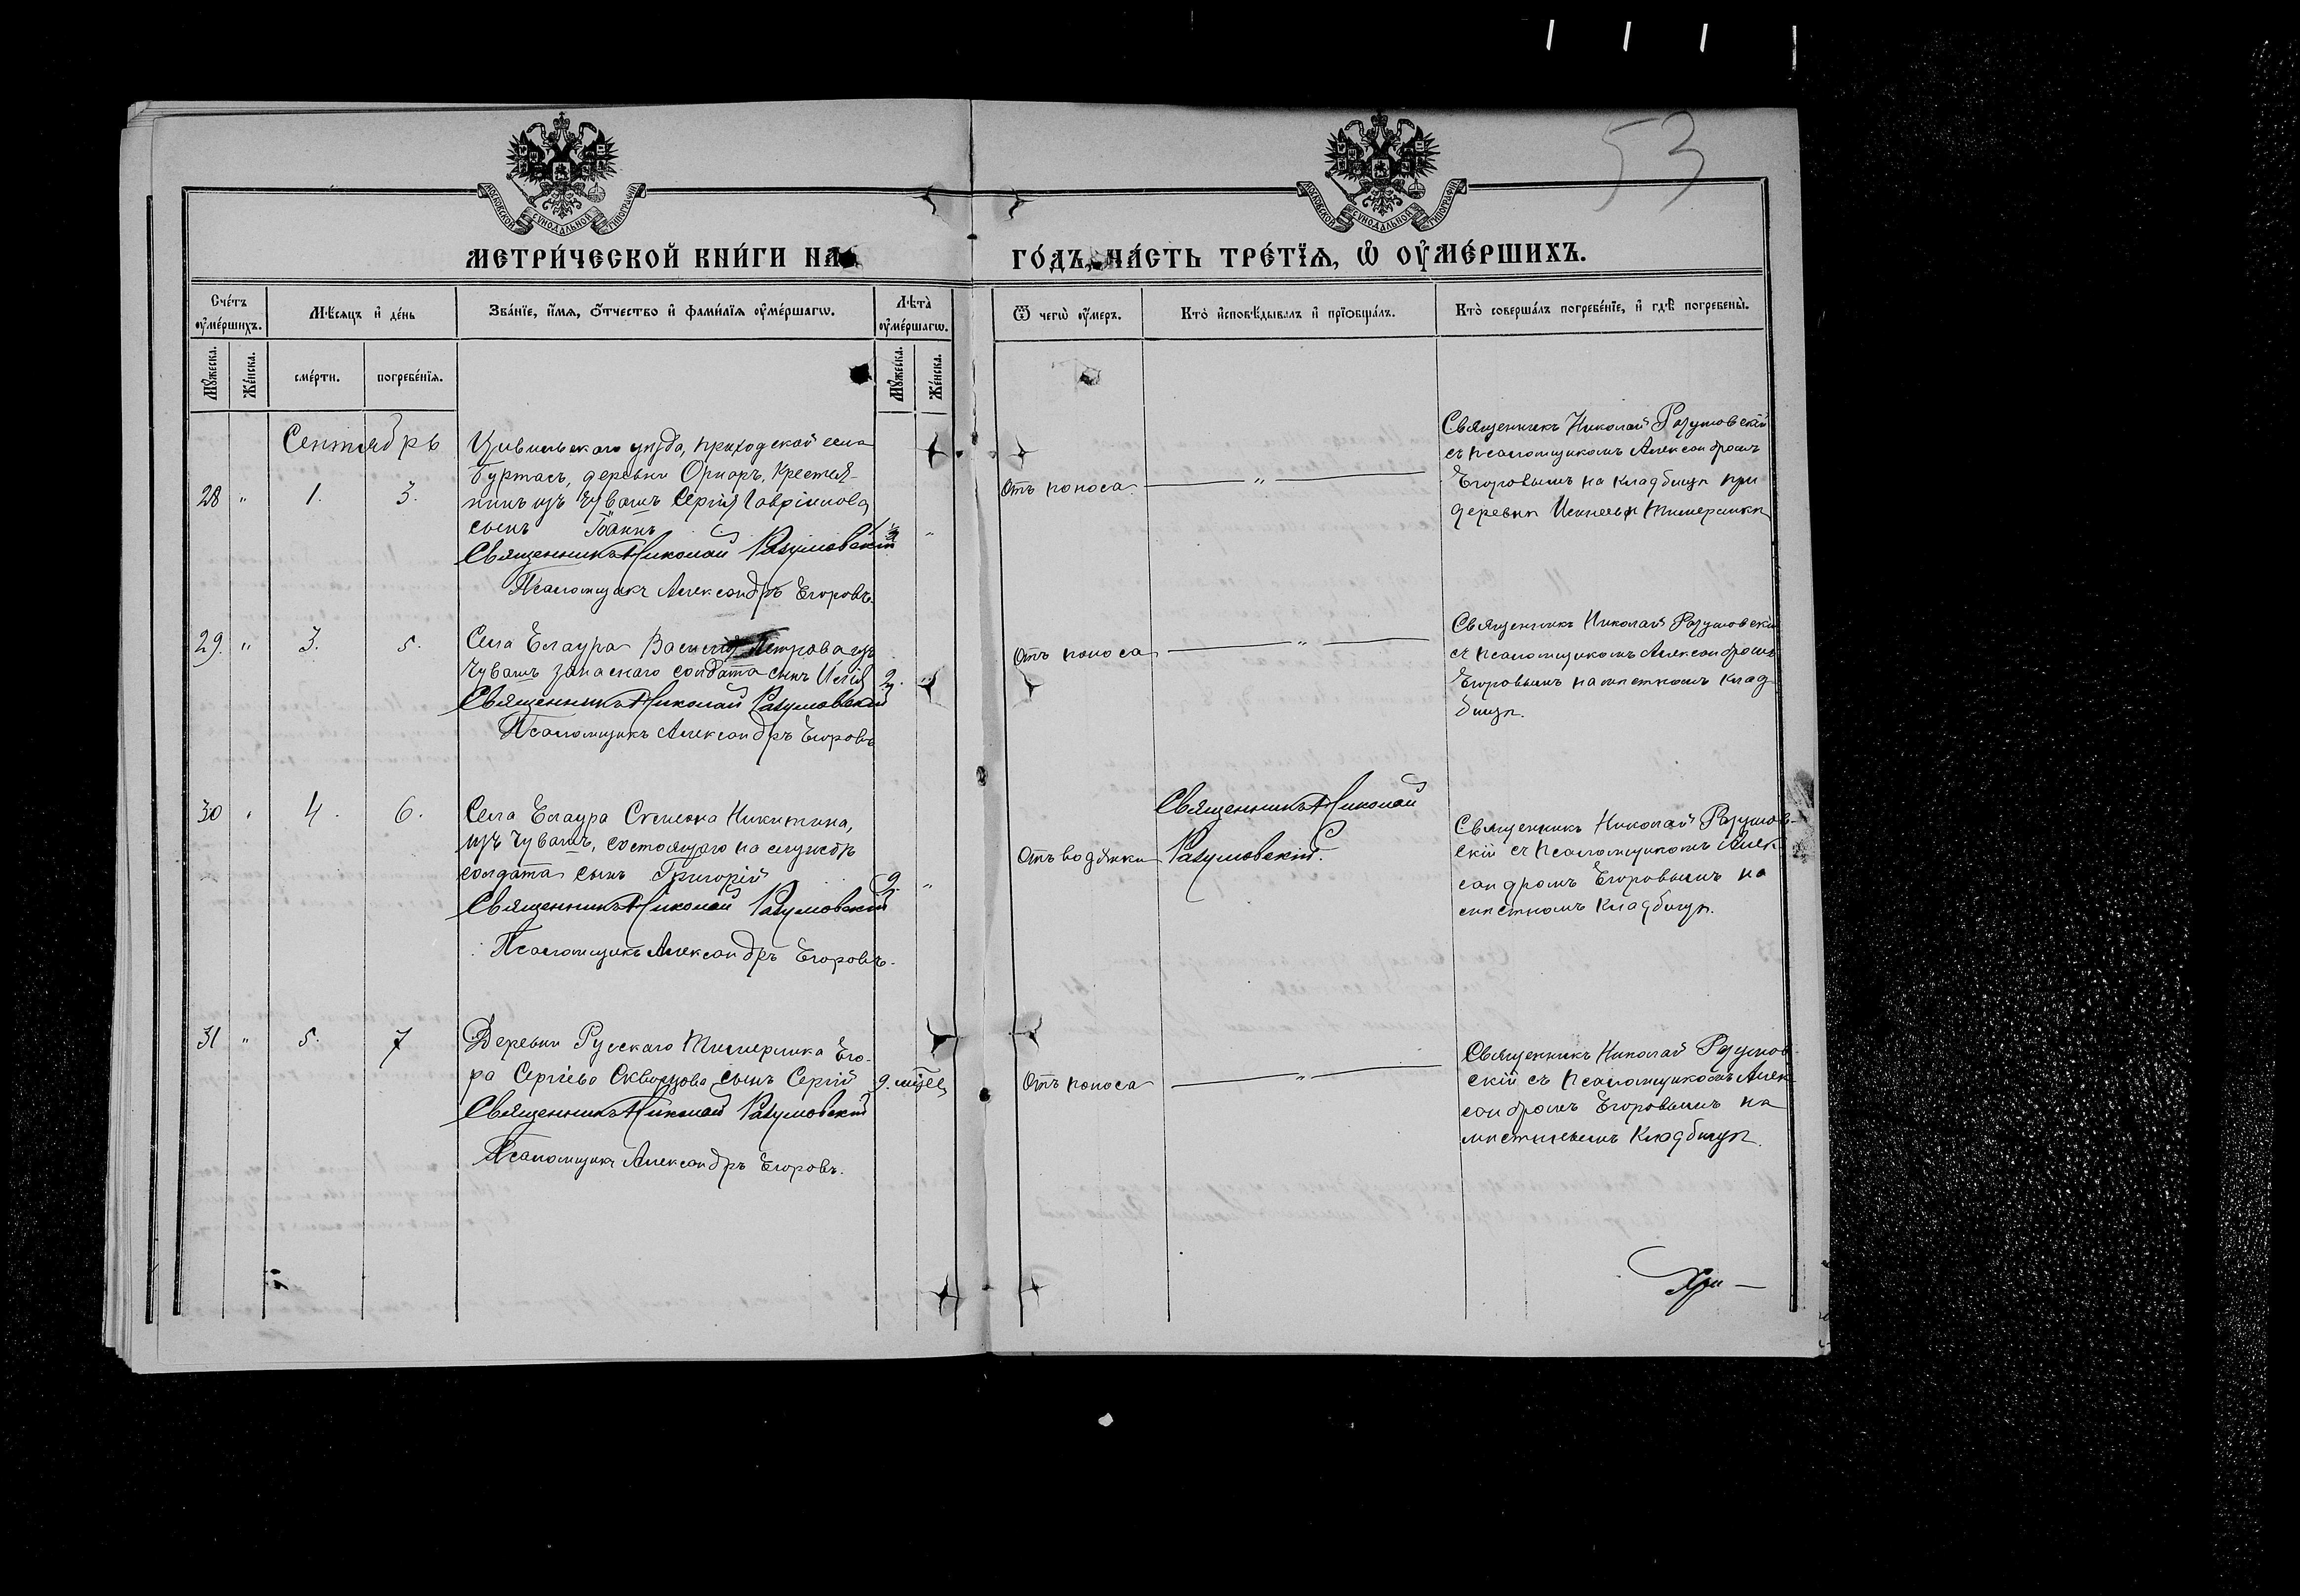 53
МОСКОВСКОЙ СѴНОДАЛЬНОЙ ТИПОГРАФІИ
МОСКОВСКОЙ СѴНОДАЛЬНОЙ ТИПОГРАФІИ
МЕТРИ́ЧЕСКОЙ КНИ́ГИ НА
ГО́ДЪ, ЧА́СТЬ ТРЕ́ТЇѦ, Ѡ҆ ОУ҆МЕ́РШИХЪ.
Сче́тъ оу҆ме́ршихъ.
Мѣ́сѧцъ и҆ де́нь
Зва́нїе, и҆́мѧ, ѻ҆́тчество и҆ фами́лїѧ оу҆ме́ршагѡ.
Лѣ́та̀ оу҆ме́ршагѡ.
Ѿ чегѡ̀ оу҆́меръ.
Кто̀ и҆сповѣ́дывалъ и҆ прїѡбща́лъ.
Кто̀ соверша́лъ погребе́нїе, и҆ гдѣ̀ погребены̀.
Мꙋ́жеска.
Же́нска.
сме́рти.
погребе́нїѧ.
Мꙋ́жеска.
Же́нска.
Сентябрь
28 " 1. 3.
Цивильскаго уѣзда, приходской села
Буртасъ, деревни Орнаръ, Крестья-
нинъ изъ Чувашъ Сергія Гаврилова
сынъ Іоаннъ
Священникъ Николай Разумовскій
Псаломщикъ Александръ Егоровъ.
Отъ поноса
"
Священникъ Николай Разумовскій
съ псаломщикомъ Александромъ
Егоровымъ на кладбищѣ при
деревни Тимерлики
29. " 3. 5.
Села Елаура Василія Петрова изъ
Чувашъ запаснаго солдата сынъ Илья
2
Священникъ Николай Разумовскій
Псаломщикъ Александръ Егоровъ
Отъ поноса
"
Священникъ Николай Разумовскій
съ псаломщикомъ Александромъ
Егоровымъ на мѣстномъ клад
бищѣ.
30 " 4. 6.
Села Елаура Семена Никитина,
изъ Чувашъ, состоящаго на службѣ
солдата сынъ Григорій
9 "
Священникъ Николай Разумовскій
Псаломщикъ Александръ Егоровъ.
Отъ водянки
Священникъ Николай
Разумовскій.
Священникъ Николай Разумов-
скій съ псаломщикомъ Алек
сандромъ Егоровымъ на
мѣстномъ кладбищѣ.
31 " 5. 7
Деревни Русскаго Тимерлика Его-
ра Сергіева Скворцова сынъ Сергій
9. мѣсец
Священникъ Николай Разумовскій
Псаломщикъ Александръ Егоровъ.
Отъ поноса
"
Священникъ Николай Разумов
скій съ псаломщикомъ Алек
сандромъ Егоровымъ на
кладбищѣ.